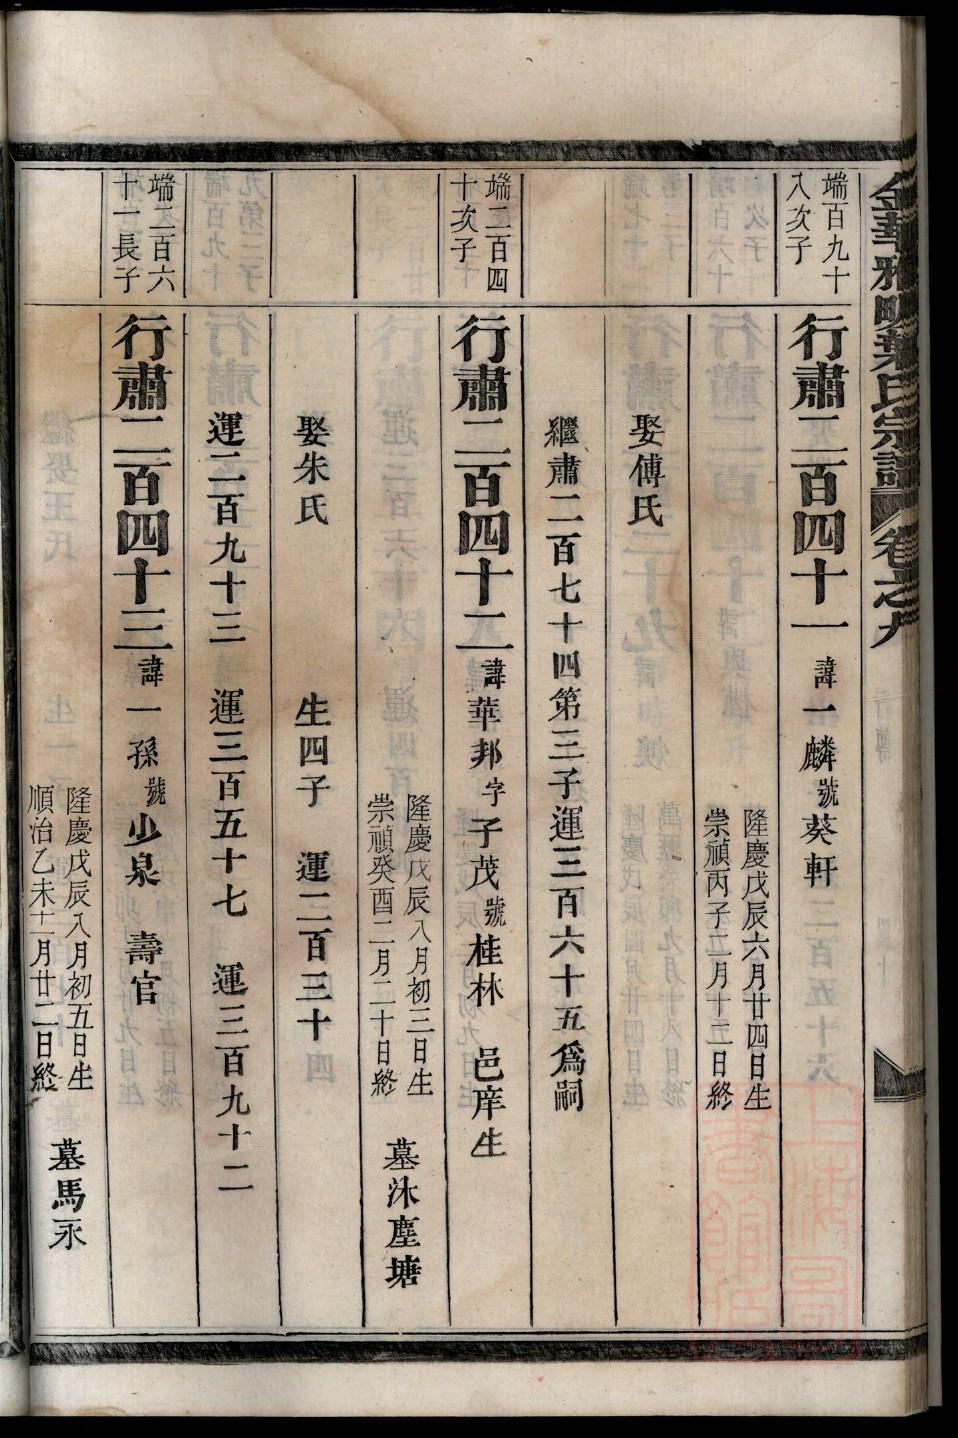 金華雅畈葉氏宗譜 卷之九
端百九十
八次子
行肅二百四十一 諱一麟號葵軒
隆慶戊辰六月廿四日生
崇禎丙子五月十五日終
娶傅氏
繼肅二百七十四第三子運三百六十五爲嗣
端二百四
十次子
行肅二百四十二 諱華邦字子茂號桂林 邑庠生
隆慶戊辰八月初三日生
崇禎癸酉二月二十日終
墓沐塵塘
娶朱氏 生四子 運二百三十
運二百九十三 運三百五十七 運三百九十二
端二百六
十一長子
行肅二百四十三 諱一孫號少泉 壽官
隆慶戊辰八月初五日生
順治乙未十二月廿二日終
墓馬永